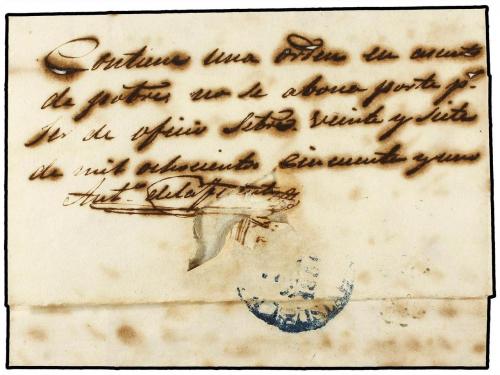 Contiene una orden en asunto
de pobres no se abona porte p.r
ser de oficio Setbre. veinte y siete
de mil ochocientos cincuenta y uno
Anto.